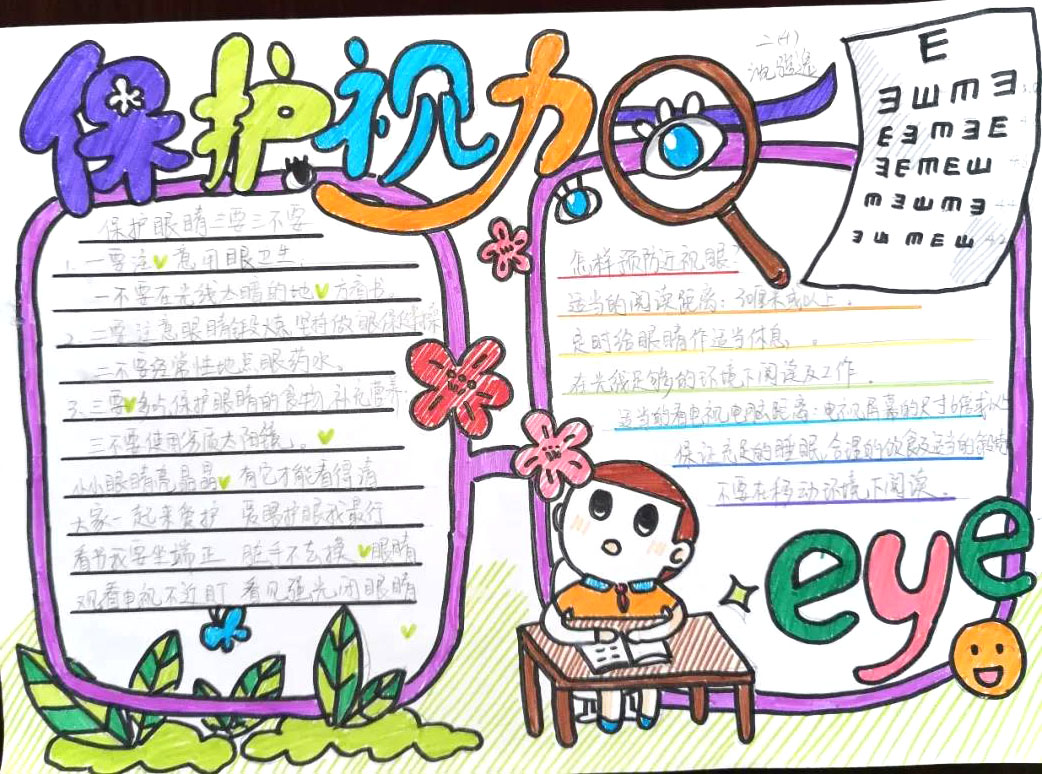 保护视力
二(4)
保护眼睛三要三不要
1. 一要注意用眼卫生.
一不要在光线太暗的地方看书.
2. 二要注意眼睛锻炼,坚持做眼保健操
二不要经常性地点眼药水。
3. 三要多吃保护眼睛的食物,补充营养.
三不要使用劣质太阳镜。
小小眼睛亮晶晶 有它才能看得清
大家一起来爱护 爱眼护眼我最行
看书我要坐端正 脏手不去揉眼睛
观看电视不近盯 看见强光闭眼睛
E
E E E E
E E E E E
E E E E E
E E E E E
E E E E E
怎样预防近视眼?
适当的阅读距离:30厘米或以上。
定时给眼睛作适当休息。
在光线足够的环境下阅读及工作。
适当的看电视电脑距离:电视屏幕的尺寸6倍或以上
保证充足的睡眠,合理的饮食及适当的锻炼
不要在移动环境下阅读。
eye